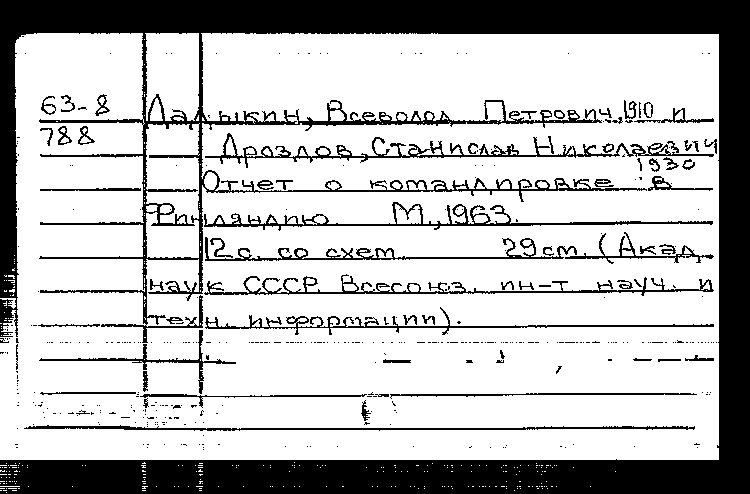 63-8 Ладыкин, Всеволод Петрович, 1910 и
788
Дроздов, Станислав Николаевич
1930
Отчет о командировке в
Финляндию М., 1963.
12 с. со схем 29 см. (Акад.
наук СССР. Всесоюз. ин-т науч. и
техн. информации).